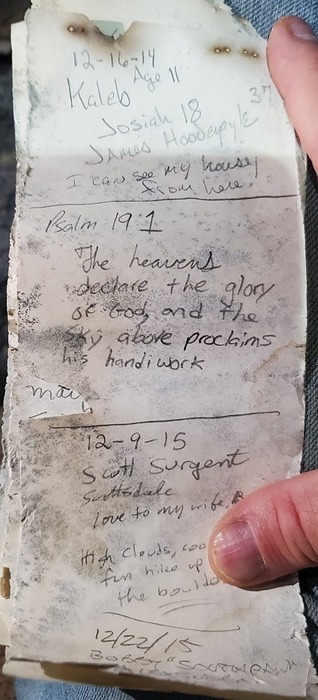 12-16-14
Age 11
Kaleb
Josiah 18
James Hooderpyle 37
I can see my house
from here.
Psalm 19:1
The heavens
declare the glory
of God, and the
sky above proclaims
his handiwork
12-9-15
Scott Surgent
Scottsdale
Love to my wife,
High clouds,
fun hike up
the
12/22/15
Bobby "Southpaw"